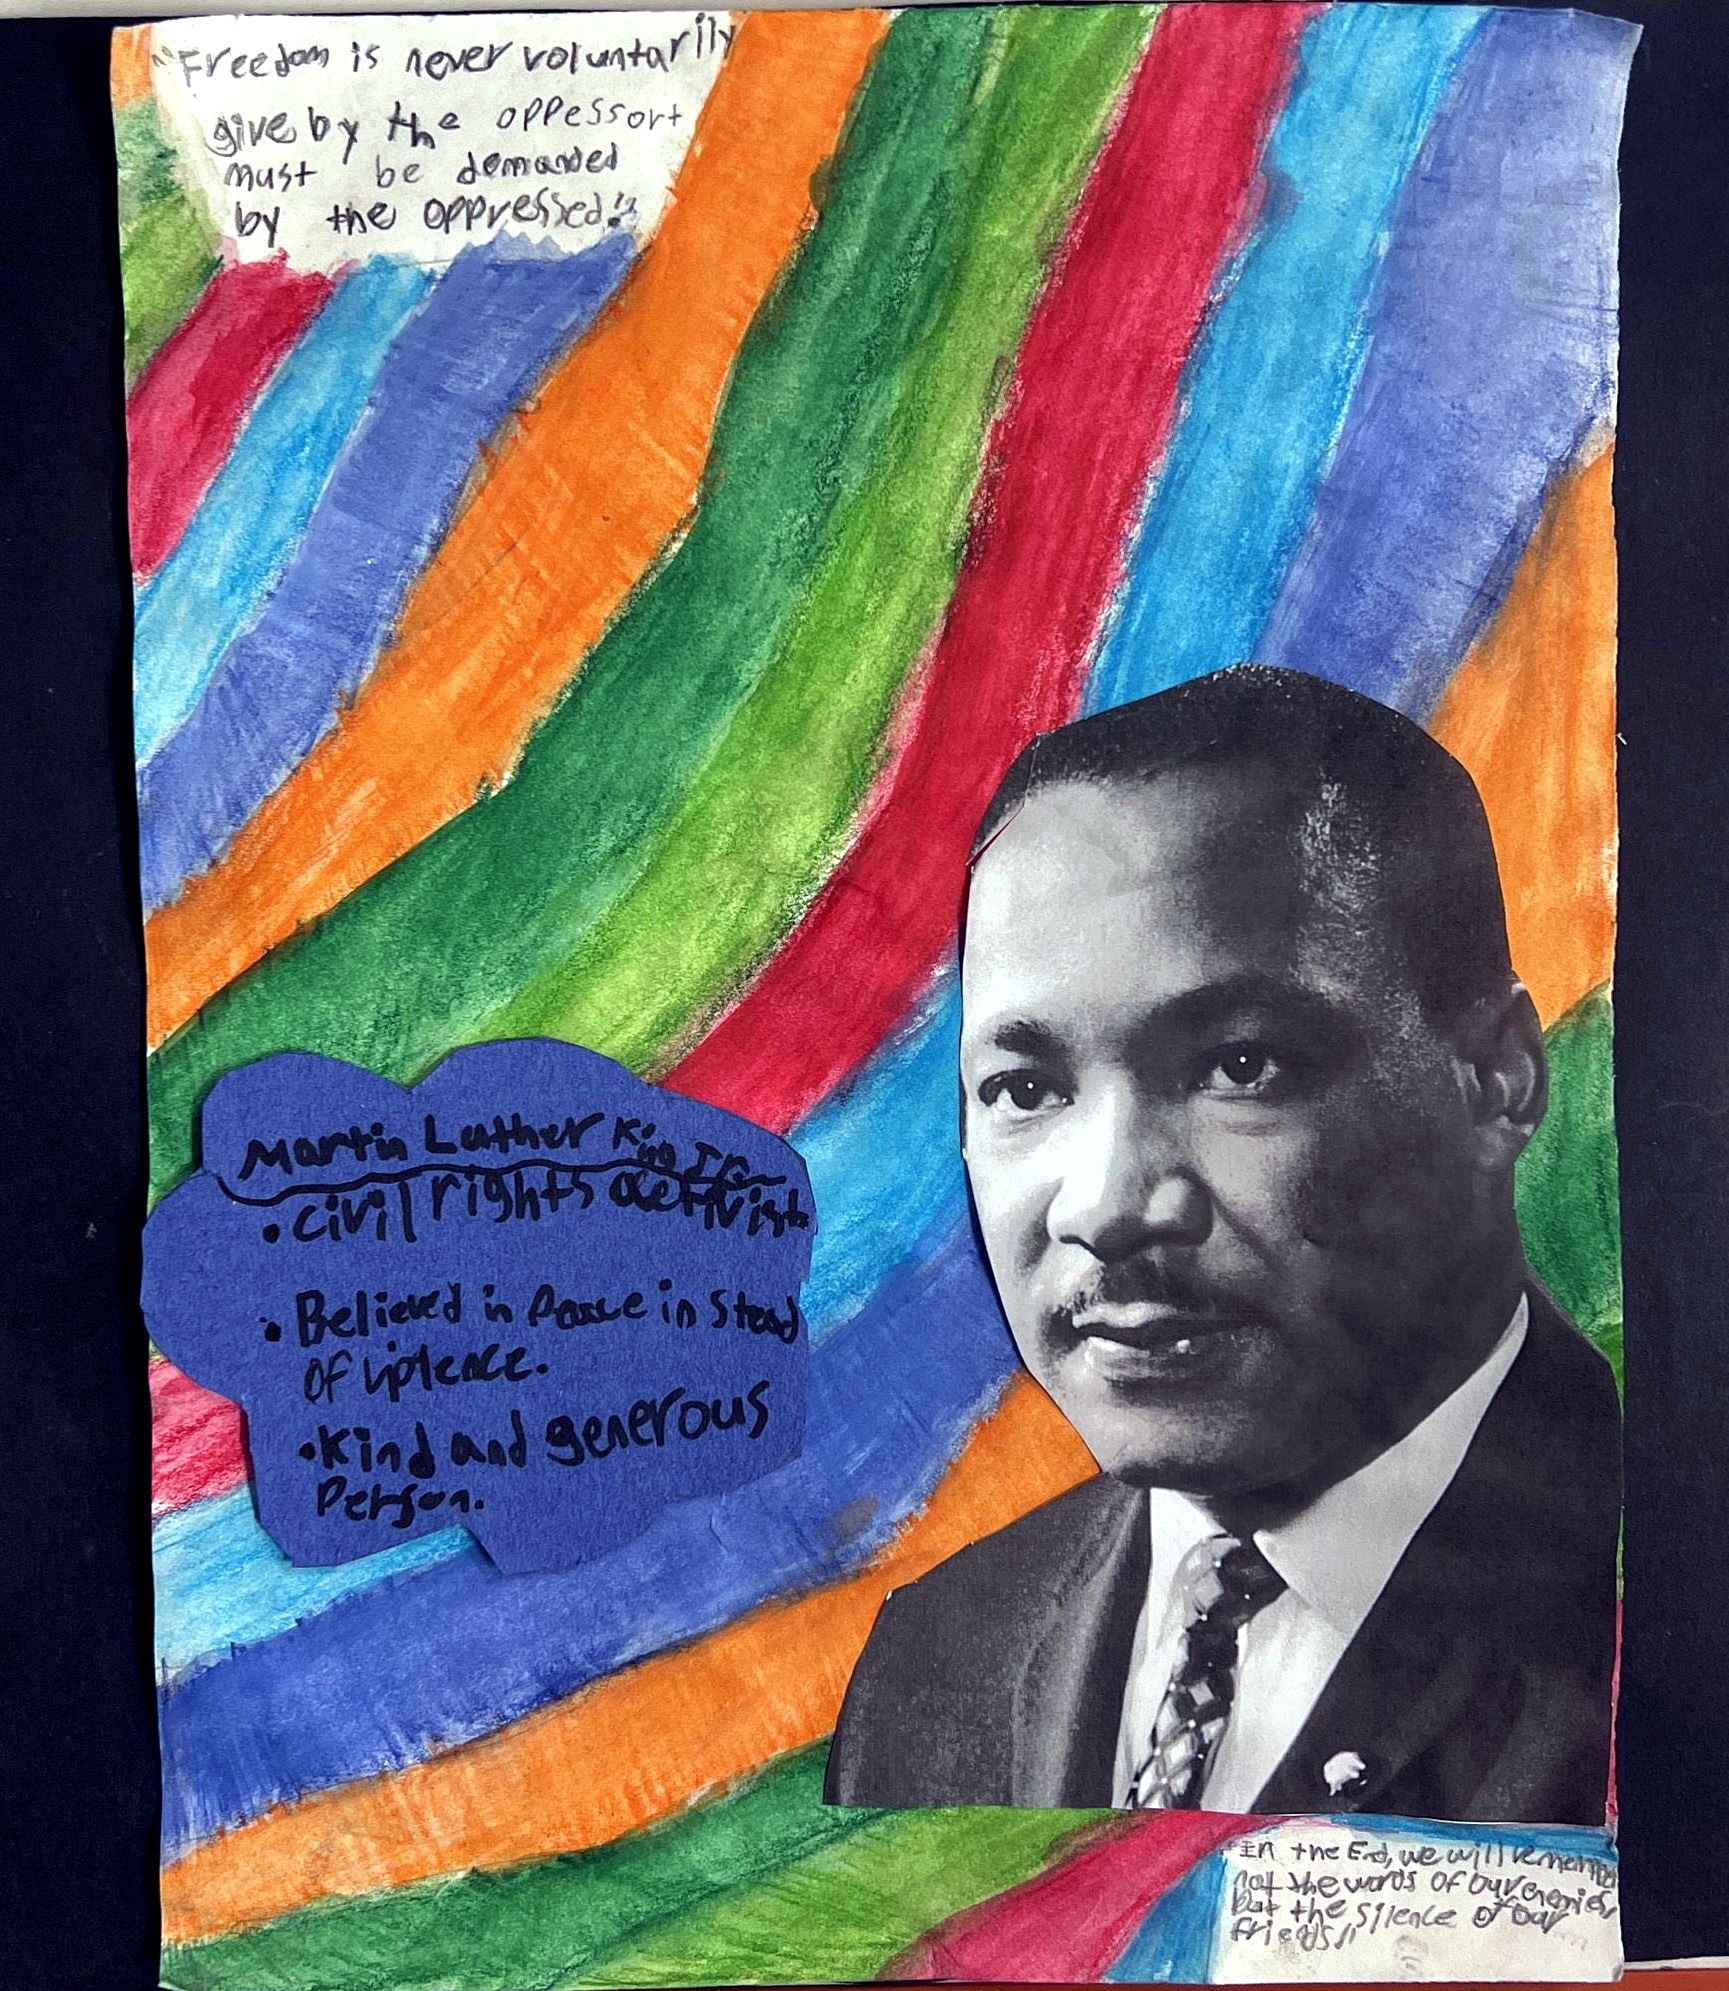 "Freedom is never voluntarily
give by the oppessort
must be demanded
by the oppressed!"
Martin Luther King Jr.
• civil rights activist
• Believed in Peace in stead
of violence.
• Kind and generous
Person.
"In the End, we will remember
not the words of our enemies,
but the silence of our
friends"